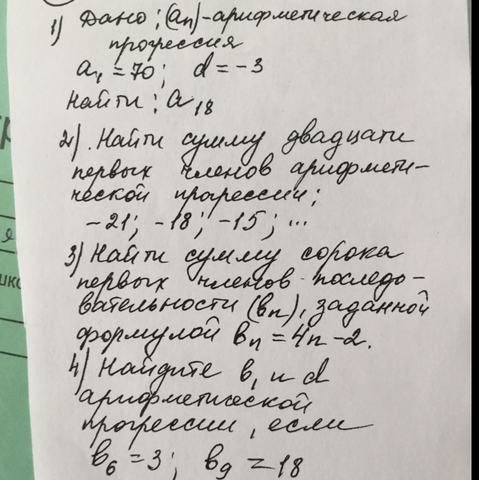 1) Дано: (aп)-арифметическая
прогрессия
a₁ = 70; d = -3
Найти: a₁₈
2). Найти сумму двадцати
первых членов арифмети-
ческой прогрессии;
-21; -18; -15; ...
3) Найти сумму сорока
первых членов последо-
вательности (вп), заданной
формулой вп = 4n - 2.
4) Найдите в₁ и d
арифметической
прогрессии, если
в₆ = 3; в₉ = 18